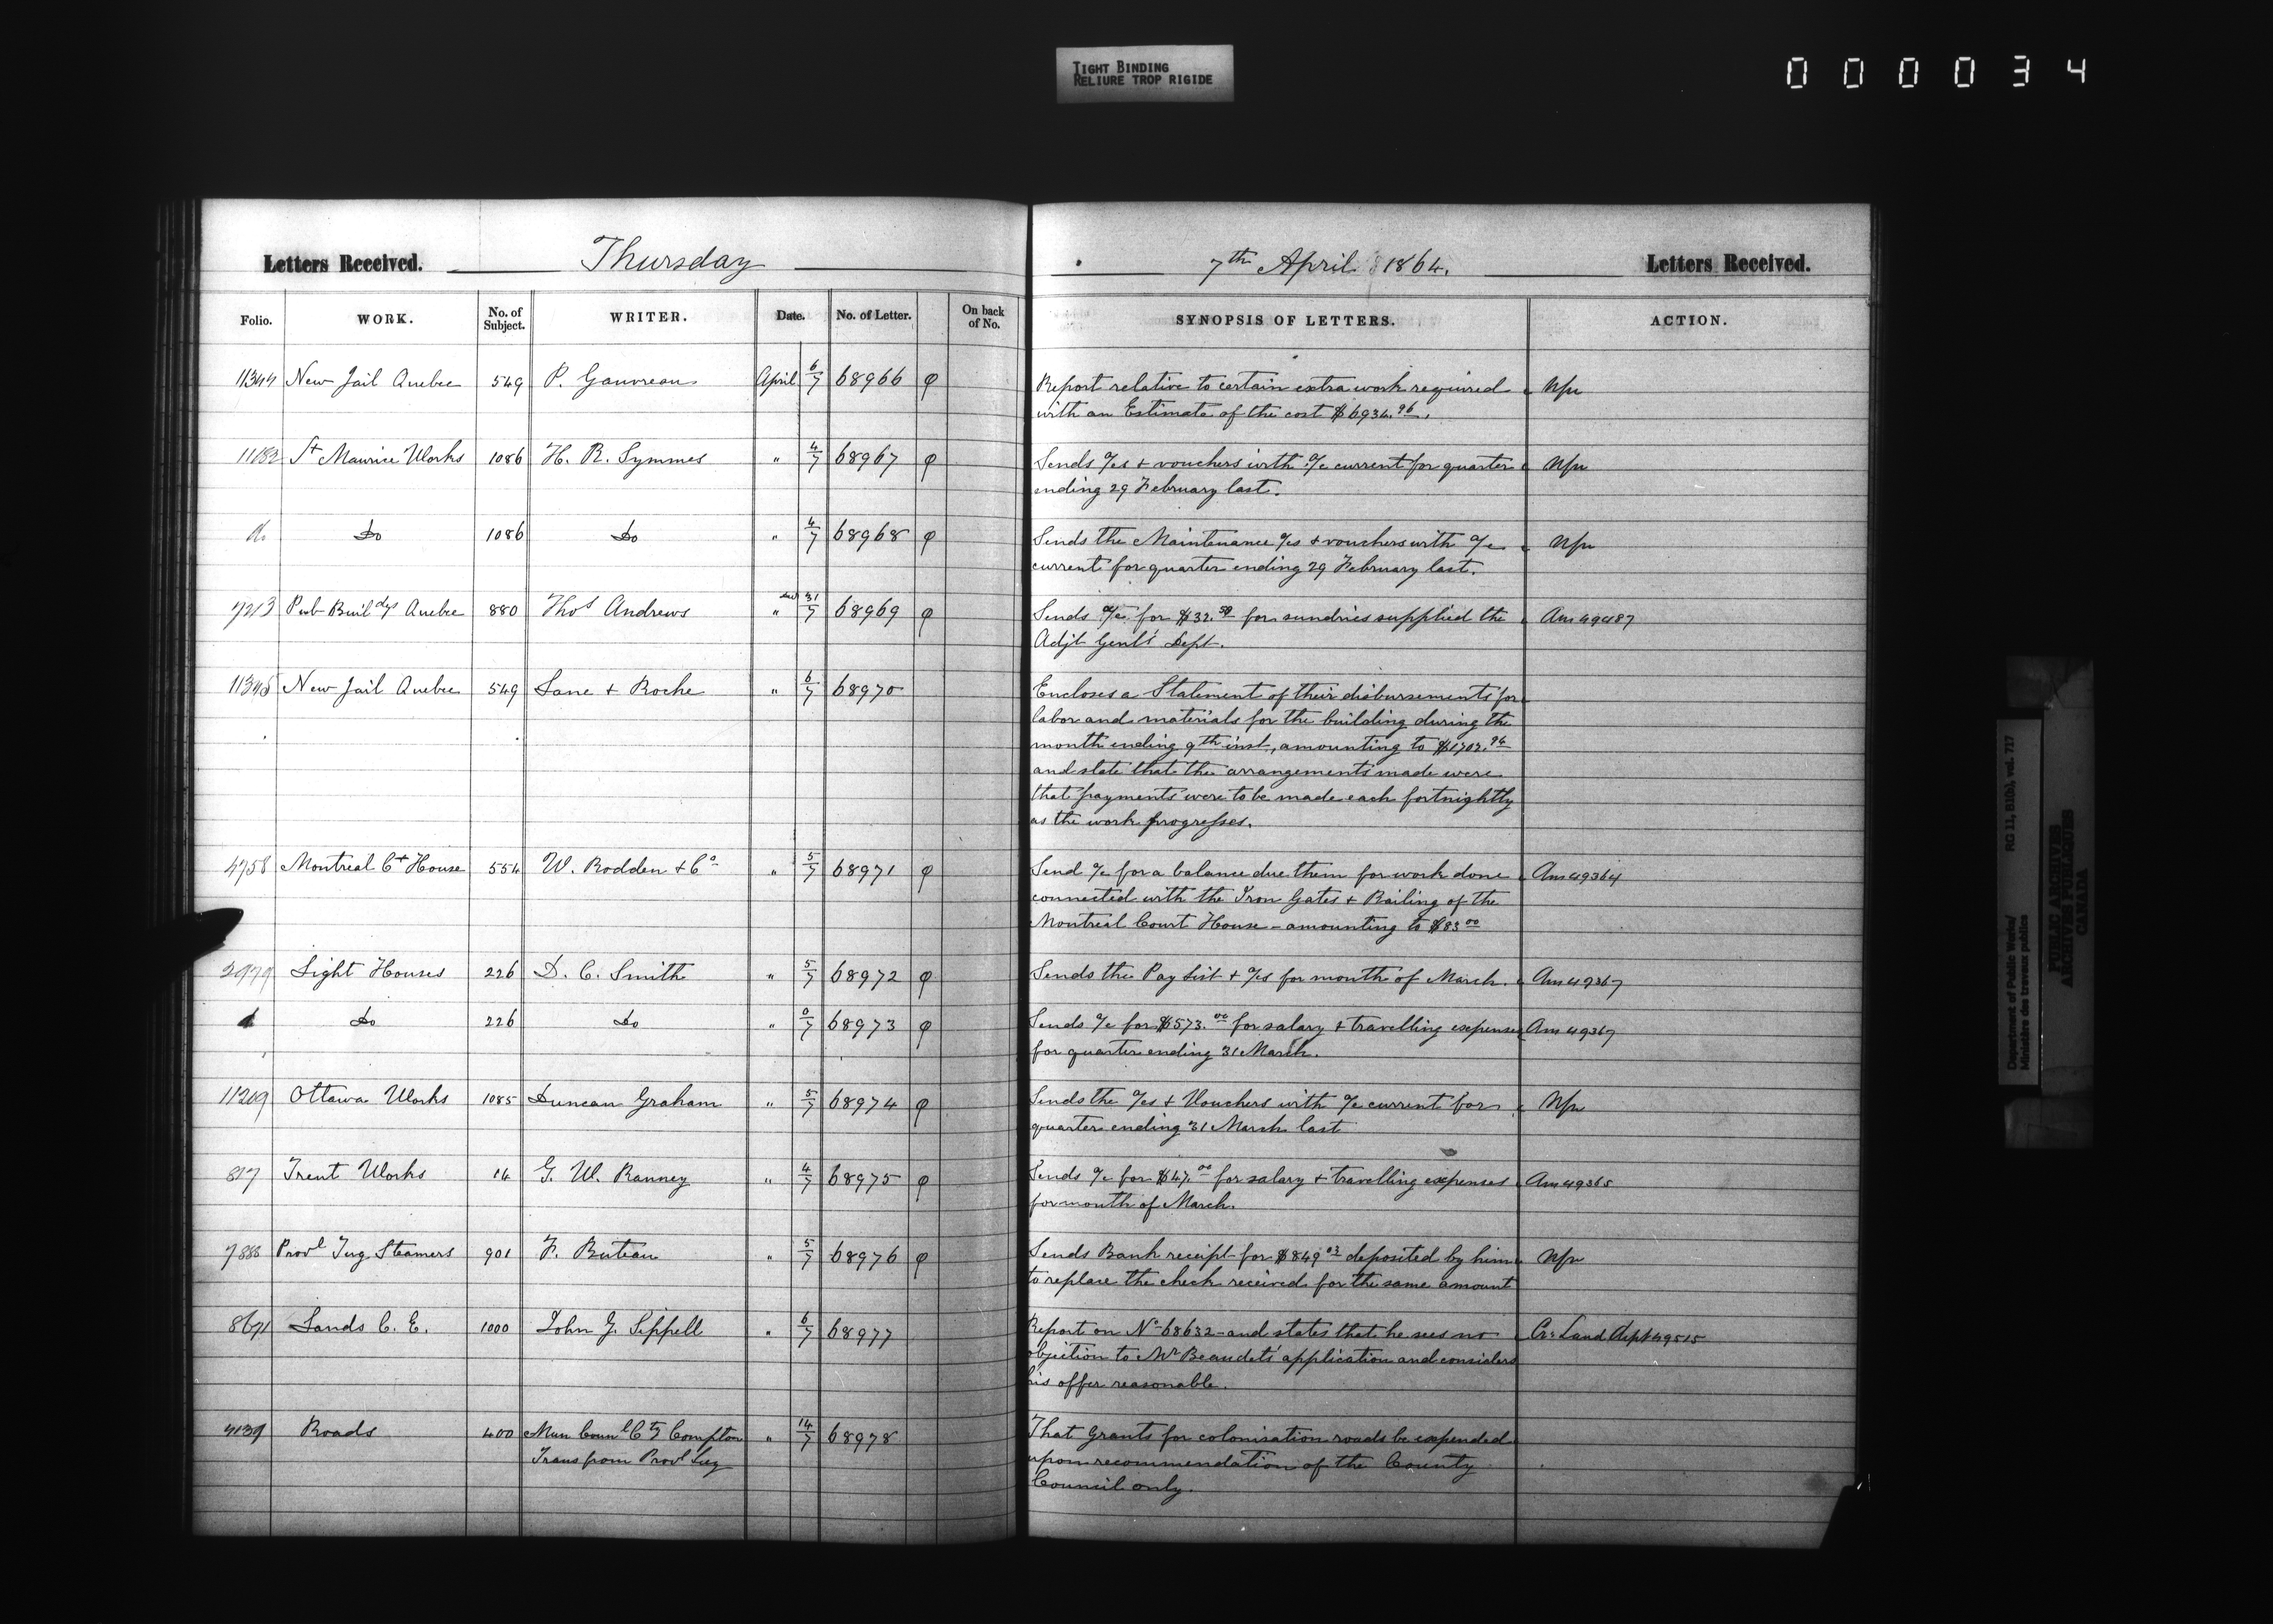 TIGHT BINDING
RELIURE TROP RIGIDE
000034
Letters Received. Thursday
7th April 1864. Letters Received.
Folio. WORK. No. of Subject. WRITER. Date. No. of Letter. On back of No.
SYNOPSIS OF LETTERS. ACTION.
11344 New Jail Quebec 549 P. Gauvreau April 6/7 68966 φ
Report relative to certain extra work required
with an Estimate of the cost $6934.96.
11182 St Maurice Works 1086 H. R. Symmes " 4/7 68967 φ
Sends a/cs + vouchers with a/c current for quarter
ending 29 February last.
do Do 1086 Do " 4/7 68968 φ
Sends the Maintenance a/cs + vouchers with a/c
current for quarter ending 29 February last.
7213 Pub Buildgs Quebec 880 Thos Andrews " 31/7 68969 φ
Sends a/c for $32.50 for sundries supplied the Am 49487
Adjt Genl's Dept.
11345 New Jail Quebec 549 Lane + Roche " 6/7 68970
Encloses a Statement of their disbursements for
labor and materials for the building during the
month ending 9th inst, amounting to $1702.94
and state that the arrangements made were
that payments were to be made each fortnightly
as the work progresses.
4758 Montreal Ct House 554 W. Rodden + Co " 5/7 68971 φ
Send a/c for a balance due them for work done Am 49364
connected with the Iron Gates + Railing of the
Montreal Court House - amounting to $83.00
2979 Light Houses 226 D. C. Smith " 5/7 68972 φ
Sends the Pay List + a/cs for month of March. Am 49367
Do 226 Do " 68973 φ
Sends a/c for $573.00 for salary + travelling expenses Am 49367
for quarter ending 31 March.
11209 Ottawa Works 1085 Duncan Graham " 5/7 68974 φ
Sends the a/cs + Vouchers with a/c current for
quarter ending 31 March last
817 Trent Works 14 G. W. Ranney " 4/7 68975 φ
Sends a/c for $47.00 for salary + travelling expenses Am 49365
for month of March.
7888 Provl Tug Steamers 901 F. Buteau " 5/7 68976 φ
Sends Bank receipt for $849.03 deposited by him
to replace the check received for the same amount
8671 Lands C. E. 1000 John G. Sippell " 6/7 68977
Report on No 68632 and states that he sees no Cr Land Dept 49515
objection to Mr Beaudet's application and considers
his offer reasonable.
4139 Roads 400 Mun Counl Cty Compton " 14/7 68978
Trans from Provl Secy
That Grants for colonisation roads be expended
upon recommendation of the County
Council only.
Department of Public Works/ RG 11, B1(b), vol. 717
Ministère des travaux publics
PUBLIC ARCHIVES
ARCHIVES PUBLIQUES
CANADA